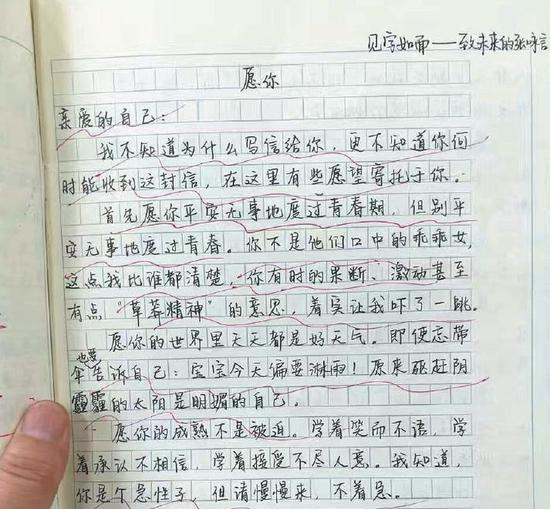 见字如面——致未来的张咏言
愿你
亲爱的自己:
我不知道为什么写信给你,更不知道你何
时能收到这封信,在这里有些愿望寄托于你.
首先愿你平安无事地度过青春期,但别平
安无事地度过青春。你不是他们口中的乖乖女,
这点我比谁都清楚,你有时的果断、激动甚至
有点“草莽精神”的意思,着实让我吓了一跳。
愿你的世界里天天都是好天气。即使忘带
伞也要告诉自己:宝宝今天偏要淋雨!原来驱赶阴
霾的太阳是明媚的自己。
愿你的成熟不是被迫。学着笑而不语,学
着承认不相信,学着接受不尽人意。我知道,
你是个急性子,但请慢慢来,不着急。